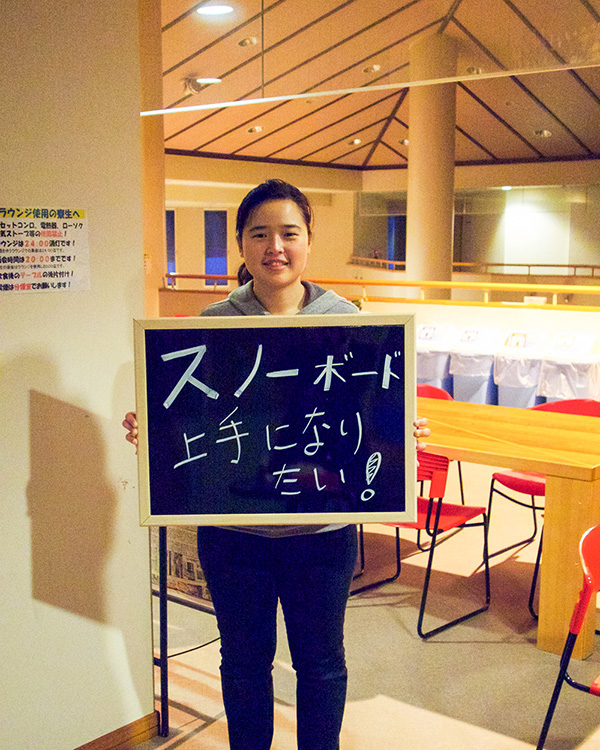 ラウンジ使用の寮生へ
セットコンロ、電熱器、ローソク
気ストーブ等の使用禁止!
ウンジは24:00消灯です!
会時間は20:00までです!
食後のテーブルの後片付け!
煙は分煙室でお願いします!
スノーボード
上手になり
たい!